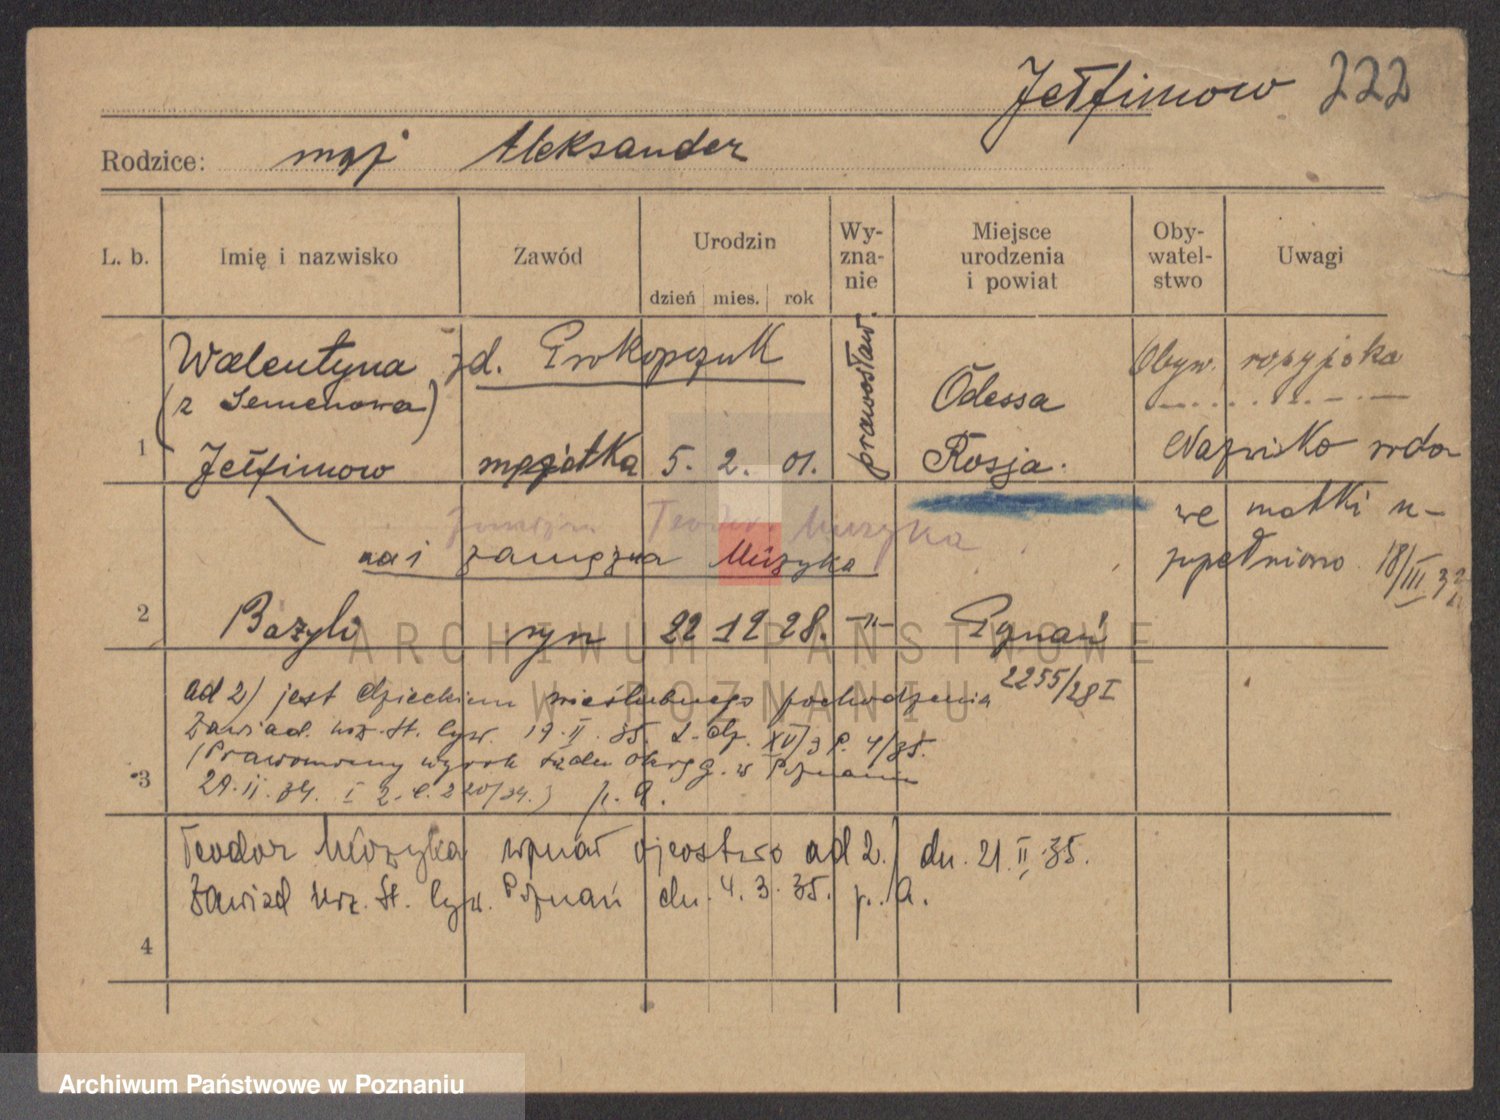 Jełfimow 222
Rodzice: mąż Aleksander
L. b. Imię i nazwisko Zawód Urodzin Wy-zna-nie Miejsce urodzenia i powiat Oby-watel-stwo Uwagi
dzień mies. rok
Walentyna zd. Prokopczuk prawosław. Obyw. rosyjska
(z Semenowa) Odessa
1 Jełfimow mężatka 5. 2. 01. Rosja. Nazwisko rodo
Teodor Muzyka we matki u-
na i zamężna Muzyka zupełniono 18/III 32
2 Bazyli syn 22 12 28. -"- Poznań
ad 2) jest dzieckiem nieślubnego pochodzenia 2255/28 I
Zawiad. urz. st. cyw. 19. II. 35. L. dz. XV/3 P. 4/35.
3 (Prawomocny wyrok Sądu Okręg. w Poznaniu
29. II. 34. I 2. C. 220/34.) p. a.
Teodor Muzyka uznał ojcostwo ad 2.) dn. 21. II. 35.
Zawiad urz. st. cyw. Poznań dn. 4. 3. 35. p. a.
4
ARCHIWUM PAŃSTWOWE
W POZNANIU
Archiwum Państwowe w Poznaniu